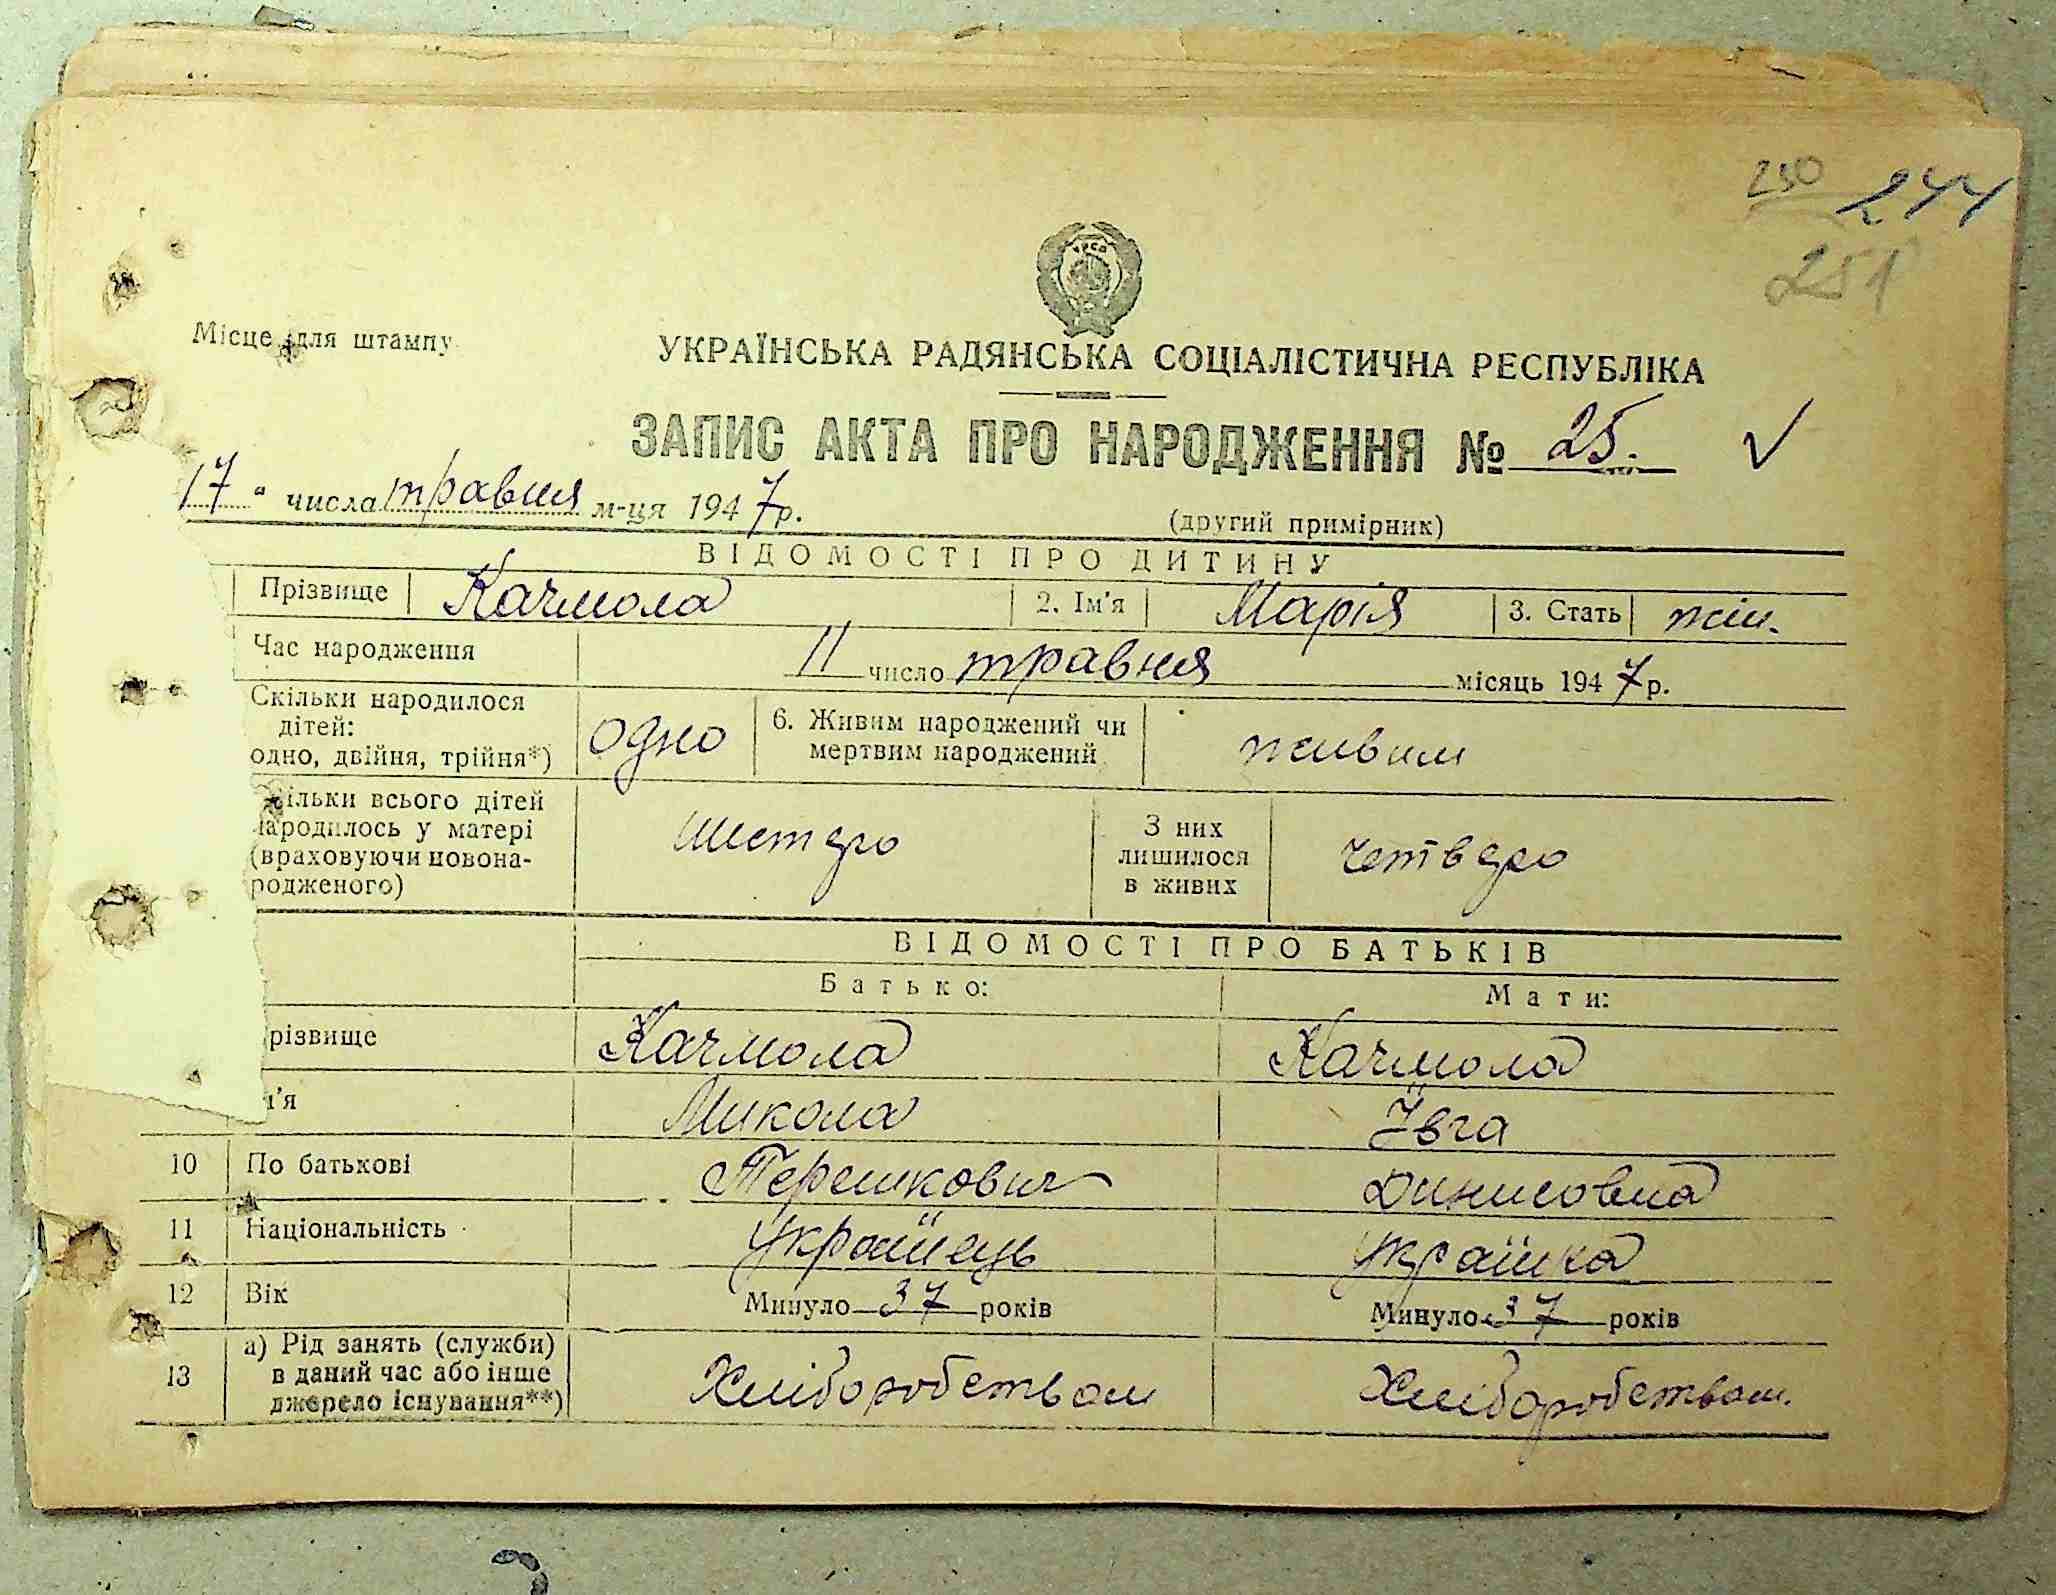 250 244
251
УРСР
Місце для штампу
УКРАЇНСЬКА РАДЯНСЬКА СОЦІАЛІСТИЧНА РЕСПУБЛІКА
ЗАПИС АКТА ПРО НАРОДЖЕННЯ № 25.
17 " числа травня м-ця 1947р.
(другий примірник)
ВІДОМОСТІ ПРО ДИТИНУ
Прізвище Качмола 2. Ім'я Марія 3. Стать жін.
Час народження 11 число травня місяць 1947р.
Скільки народилося
дітей:
одно, двійня, трійня*) одно 6. Живим народжений чи
мертвим народжений живим
ільки всього дітей
народилось у матері
(враховуючи новона-
родженого) шестеро З них
лишилося
в живих четверо
ВІДОМОСТІ ПРО БАТЬКІВ
Батько: Мати:
різвище Качмола Качмола
м'я Микола Ївга
10 По батькові Терешкович Динисовна
11 Національність Українець Українка
12 Вік Минуло 37 років Минуло 37 років
13 а) Рід занять (служби)
в даний час або інше
джерело існування**) Хліборобством Хліборобством.